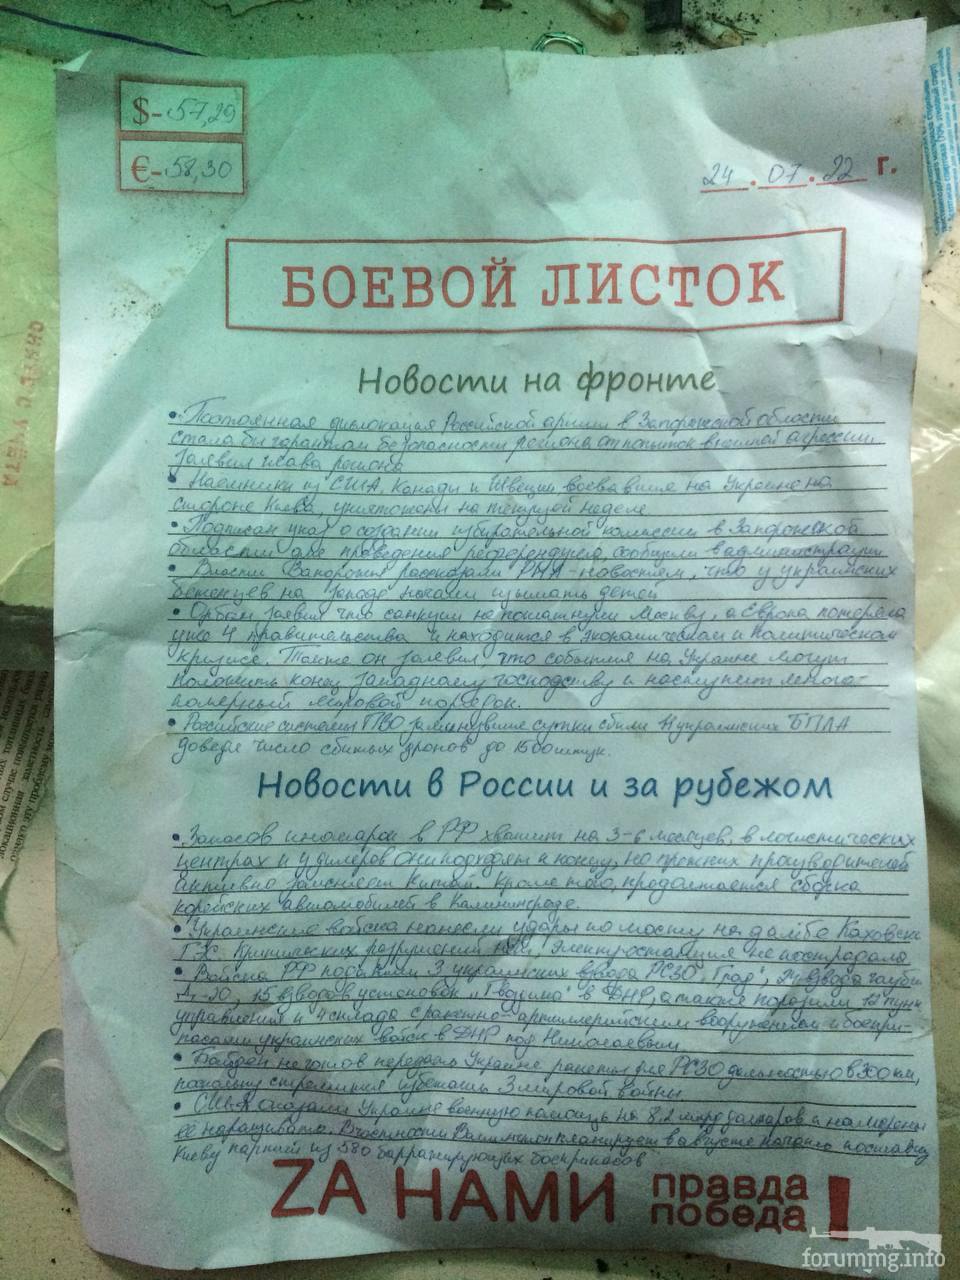 $-57,29
€-58,30
24.07.22 г.
БОЕВОЙ ЛИСТОК
Новости на фронте
• Постоянная дислокация Российской армии в Запорожской области
стала бы гарантом безопасности региона от попыток внешней агрессии
заявил глава региона
• Наемники из США, Канады и Швеции воевавшие на Украине на
стороне Киева, уничтожены на текущей неделе.
• Подписан указ о создании избирательной комиссии в Запорожской
области для проведения референдума, сообщили в администрации
• Власти Запорожья рассказали РИА-новостям, что у украинских
беженцев на западе начали изымать детей
• Орбан заявил что санкции не пошатнули Москву, а Европа потеряла
уже 4 правительства и находится в экономическом и политическом
кризисе. Также он заявил, что события на Украине могут
положить конец западному господству и наступит много-
полярный мировой порядок.
• Российские системы ПВО за минувшие сутки сбили украинских БПЛА
доведя число сбитых дронов до штук.
Новости в России и за рубежом
• Запасов иномарок в РФ хватит на 3-6 месяцев, в логистических
центрах и у дилеров они подходят к концу, но прежних производителей
активно заменяет Китай. Кроме того, продолжается сборка
корейских автомобилей в Калининграде.
• Украинские войска нанесли удары по мосту на дамбе Каховск
ГЭС. Критических разрушений нет, электростанция не пострадала
• Войска РФ подавили 3 украинских взвода РСЗО "Град", взвода гаубиц
Д-20, 15 взводов установок "Гвоздика" в ДНР, а также поразили 12 пунк
управления и 4 склада с ракетно-артиллерийским вооружением и боепри-
пасами украинских войск в ДНР под Николаевым
• Байден не готов передать Украине ракеты для РСЗО дальностью в 300 км,
поскольку стремится избежать 3 мировой войны
• США оказали Украине военную помощь на 8,2 млрд долларов и намерены
её наращивать. В частности Вашингтон планирует в августе начать поставку
Киеву партий из 580 барражирующих боеприпасов
ZА НАМИ правда
победа !
forummg.info